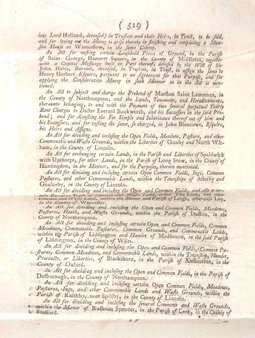 ( 519 )
into Lord Holland, deceased) in Trustees and their Heirs, in Trust, to be sold,
and for laying out the Money to arise thereby in finishing and completing a Man-
sion House at Winterslow, in the same County.
An Act for vesting certain Leasehold Pieces of Ground, in the Parish of
Saint George, Hanover Square, in the County of Middlesex, together
with a Capital Messuage built on Part thereof, and
John Sidney, Baronet, deceased, in Trustees, in Trust, to assign the same to
Henry Herbert Esquire, pursuant to an Agreement for that Purpose, and for
applying the Consideration Money in such Manner as in the Act is men-
tioned.
An Act to subject and charge the Prebend of Marston Saint Lawrence, in
the County of Northampton, and the Lands, Tenements, and Hereditaments,
thereunto belonging, to and with the Payment of
Rent Charges to Doctor Everard Buckworth, and his Successors in the said Pre-
bend; and for divesting the Fee Simple and Inheritance thereof out of him and
his Successors, and for vesting the same, so charged, in John Blencowe Esquire,
his Heirs and Assigns.
An Act for dividing and inclosing the Open Fields, Meadows, Pastures, and other
Commonable and Waste Grounds, within the Liberties of Grimley and North Wilk-
in the County of Lincoln.
An Act for exchanging certain Lands, in the Parish and Liberties of Spaldwick
with Upthorpe, for other Lands, in the Parish of Long Stow, in the County of
Huntingdon, in the Manner, and for the Purposes, therein mentioned.
An Act for dividing and inclosing certain Open Common Fields, Ings, Common
Pastures, and other Commonable Lands, within the Township of Asterby and
Goulceby, in the County of Lincoln.
An Act for dividing and inclosing the Open and Common Fields, and
within the Manor and Parish of
County of Leicester.
An Act for dividing and inclosing the Open and Common Fields, Meadows,
Pastures, Heath, and Waste Grounds, within the Parish of Duston, in the
County of Northampton.
An Act for dividing and inclosing certain Open Common Fields, Common
Meadows, Commonable Pastures, Common Grounds, and Commonable Lands,
within the Parish of Liddington and Hamlet of Medbourn, in the said Parish
of Liddington, in the County of Wilts.
An Act for dividing and inclosing the Open and Common Fields, Common Pas-
tures, Common Meadows, and Commonable Lands, within the Township, Hamlet,
Precincts, or Liberties, of Blackthorn, in the Parish of Ambrosden, in the
County of Oxford.
An Act for dividing and inclosing the Open and Common Fields, in the Parish of
Desborough, in the County of Northampton.
An Act for dividing and inclosing certain Open Common Fields, Meadows,
Pastures, Ings, and other Commonable Lands and Waste Grounds, within the
Parish of Raithby, near Spilsby, in the County of Lincoln.
An Act for dividing and inclosing the several Commons and Waste Grounds,
within the Manor of Rudierion Spencer, in the Parish of Leek, in the County of
Stafford.